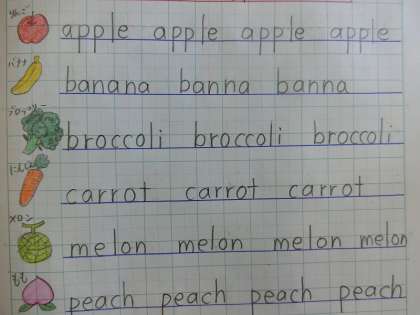 りんご
apple apple apple apple
バナナ
banana banna banna
ブロッコリー
broccoli broccoli broccoli
にんじん
carrot carrot carrot
メロン
melon melon melon melon
もも
peach peach peach peach